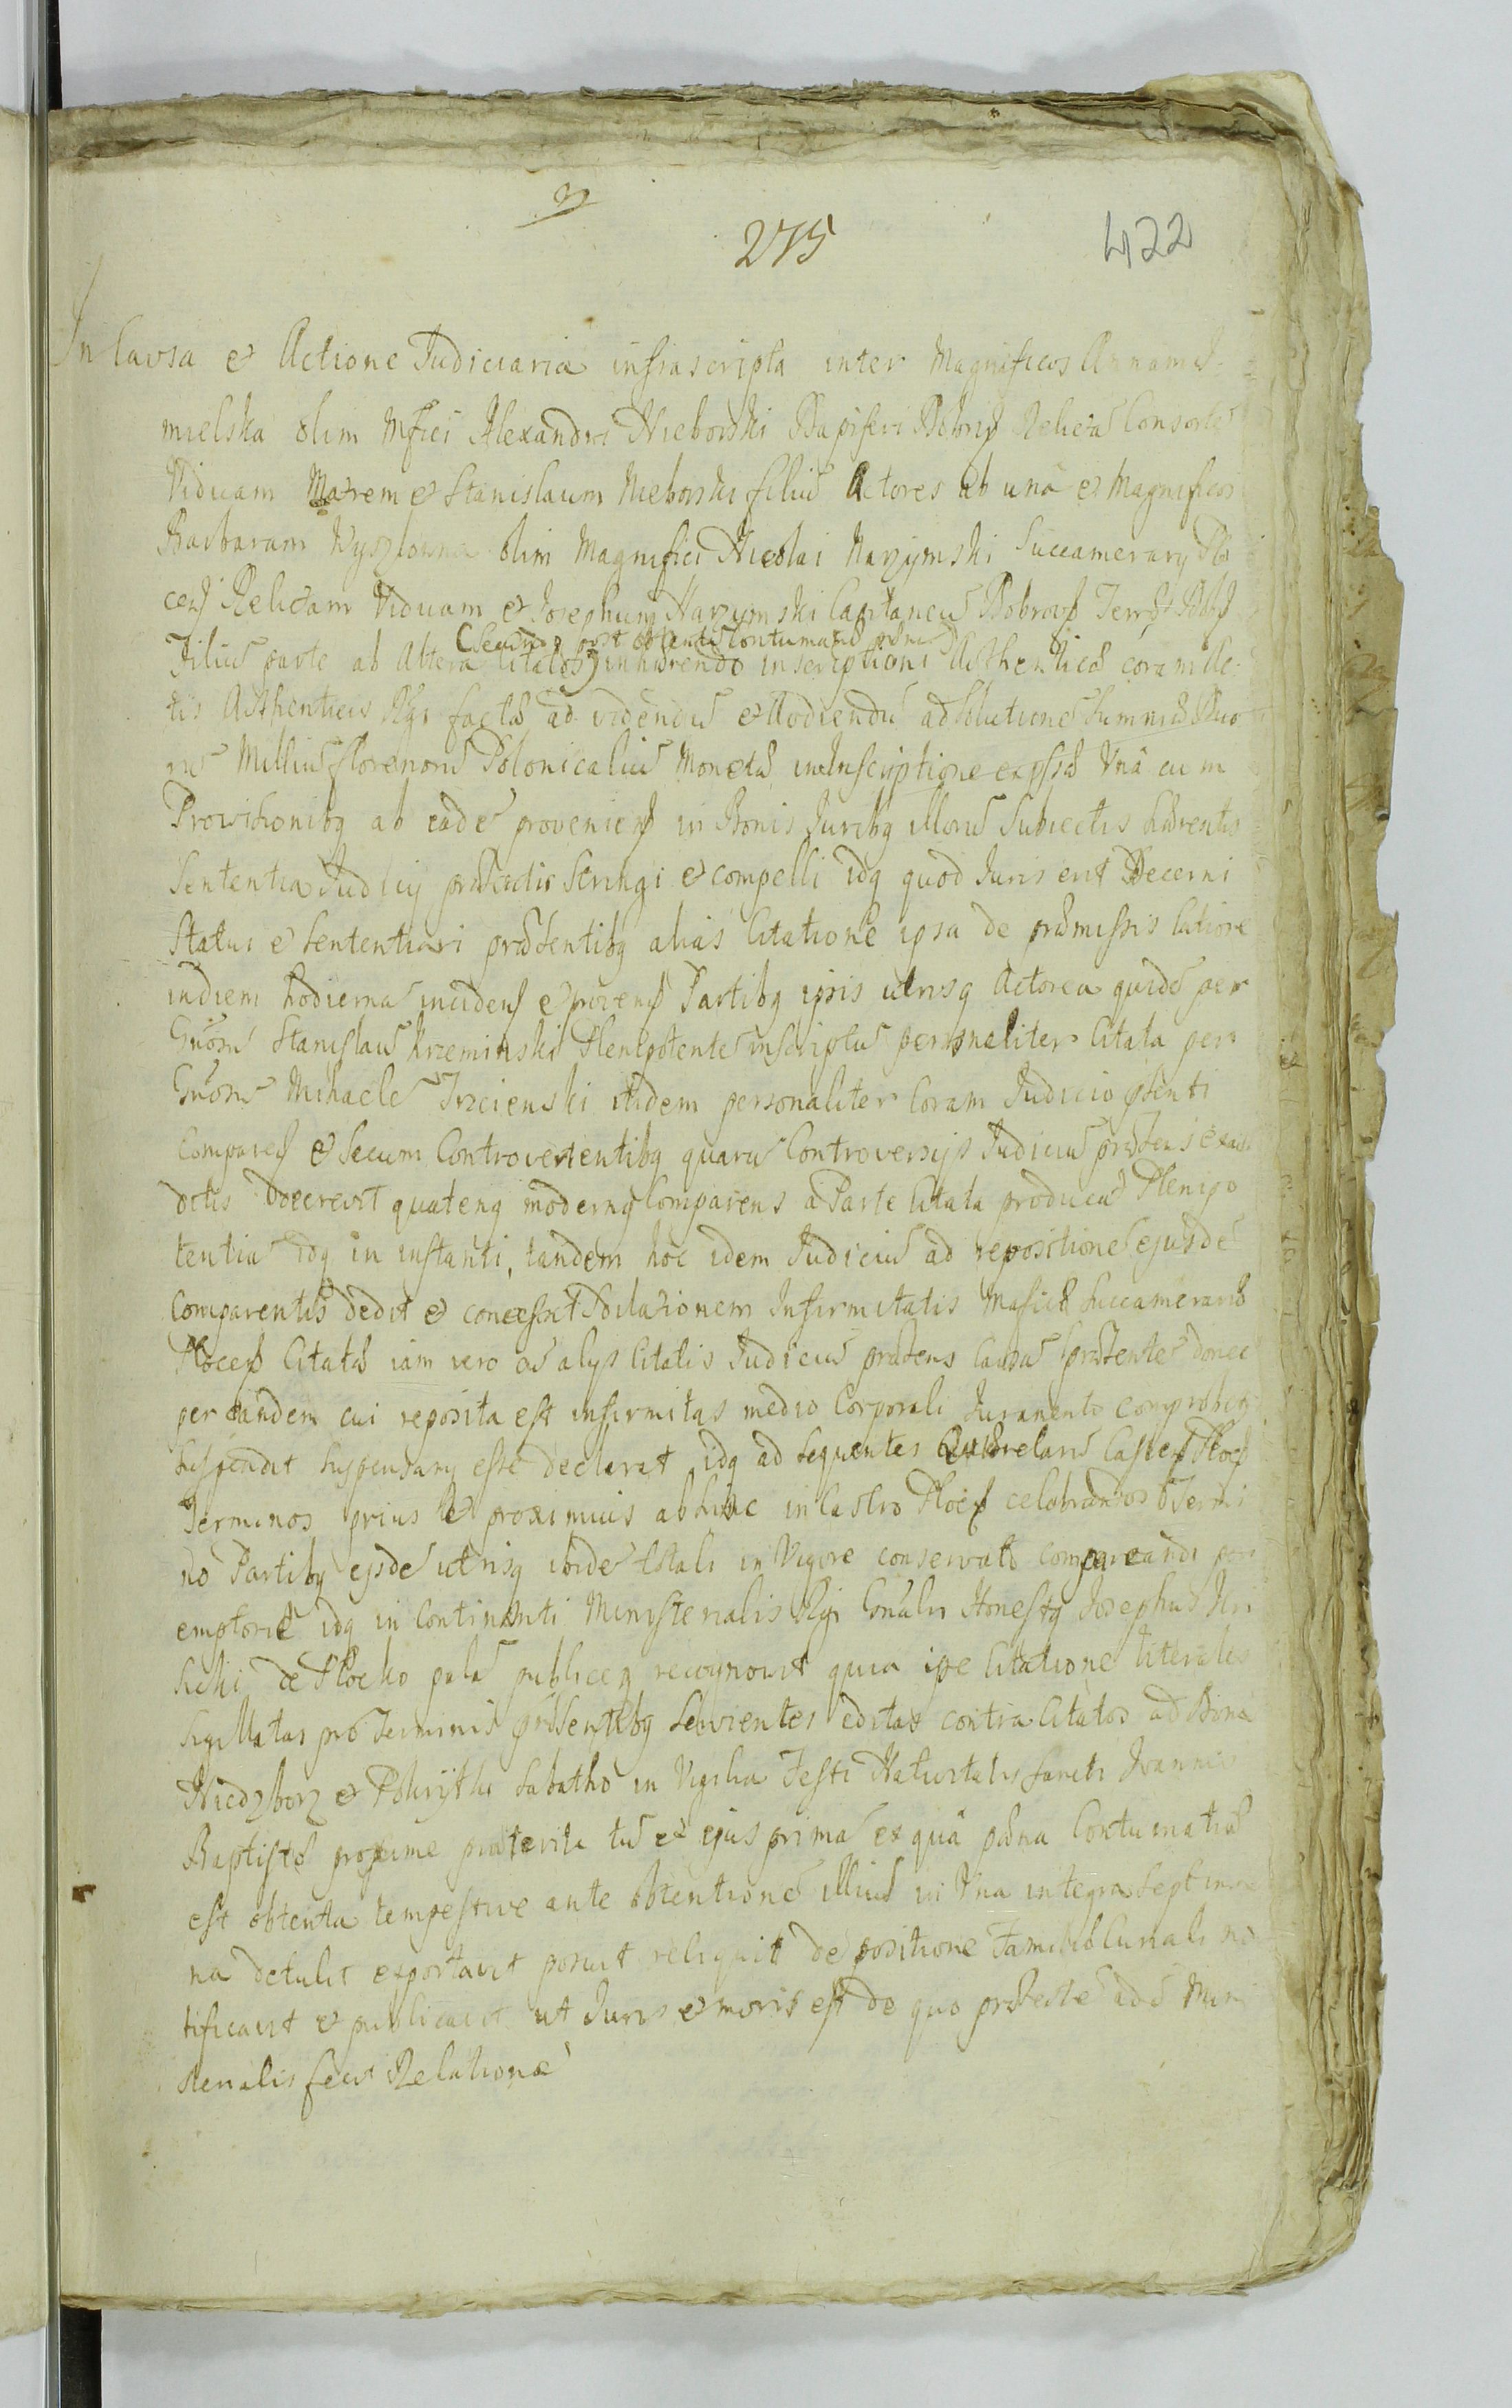 275
422
In Causa et Actione Judiciaria infrascripta inter Magnificos Annam
mielska olim Mfici Alexandri Nieborski Dapiferi Relictã Consortẽ
Viduam Matrem et Stanislaum Nieborski filiũ Actores ab unâ et Magnificos
Barbaram olim Magnifici Nicolai Narzymski Succamerarij Plo
cen Relictam Viduam et Josephum Narzymski Capitaneũ
(Secundo post obtentã Contumaciã
Filiũ parte ab Altera Citatos) inhærendo inscriptioni Authenticæ coram Ac-
tis Authenticis Rgi factæ ad videndũ et Audiendũ ad solutionẽ Summæ Duo
rũ Milliũ florenorũ Polonicaliũ Monetæ in Inscriptione expssæ Unâ cum
Provisionibq ab eadẽ provenien in Bonis Juribq illorũ Subiectis hærentis
Sententia Judicij præsentis stringi et compelli idq quod Juris erit Decerni
Statui et Sententiari præsentibq alias Citatione ipsa de præmissis latiore
in diem hodiernã inciden et proven Partibq ipsis utrisq Actorea quidẽ per
Gnosũ Stanislaũ Krzeminski Plenipotentẽ inscriptũ personaliter Citata per
Gnosũ Mihaelẽ Trzcienski itidem personaliter Coram Judicio psenti
Comparen et Secum Controvertentibq quarũ Controversijs Judiciũ præsens exau
ditis Decrevit quatenq modernq Comparens à Parte Citata producat Plenipo
tentiã idq in instanti, tandem hoc idem Judiciũ ad repositionẽ ejusdẽ
Comparentis dedit et concessit Dilationem Infirmitatis Mficæ Succamerariæ
Plocen Citatæ iam vero cũ alijs Citatis Judiciũ præsens Causã præsentẽ donec
per eandem cui reposita est infirmitas medio Corporali Juramento comprobeq
suspendit suspensamq esse declarat idq ad sequentes Querelarũ Casten Plocen
Terminos prius et proximius abhinc in Castro Plocen celebrandos Termi
no Partibq ejsdẽ utrisq ibidẽ in Vigore conservato comparendi per
emptoriẽ idq in Continenti Ministerialis Rgi Gnalis Honestq Josephus
de Plocko palã publiceq recognovit quia ipe Citationẽ literales
sigillatas pro Terminis præsentibq Servientes editas contra Citatos ad Bona
Niedzborz et Pokrytki Sabatho in Vigilia Festi Nativitatis Sancti Joannis
Baptistæ proxime præterita tũ et ejus prima ex quâ pæna Contumatiæ
est obtenta tempestive ante obtentionẽ illius in Una integra septima
na detulit exportavit posuit reliquit de positione Familiæ Curiali no
tificavit et publicavit ut Juris et moris est de quo Mini
sterialis fecit Relationẽ